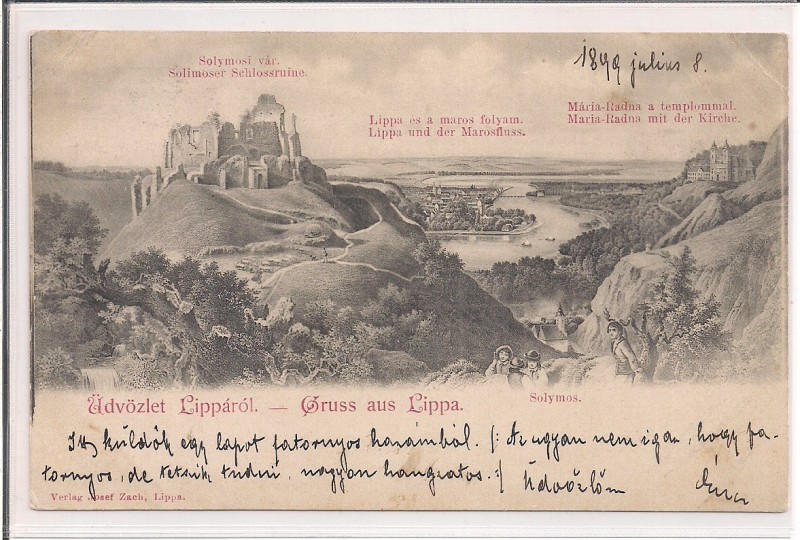 Solymosi vár.
Solimoser Schlossruine.
1899 julius 8.
Lippa és a maros folyam.
Lippa und der Marosfluss.
Mária-Radna a templommal.
Maria-Radna mit der Kirche.
Üdvözlet Lippáról. — Gruss aus Lippa.
Solymos.
küldök egy lapot fatornyos hazámból. (: Az ugyan nem igaz, hogy fa-
tornyos, de tetszik tudni, nagyon hangzatos. :) Üdvözlöm
Verlag Josef Zach, Lippa.